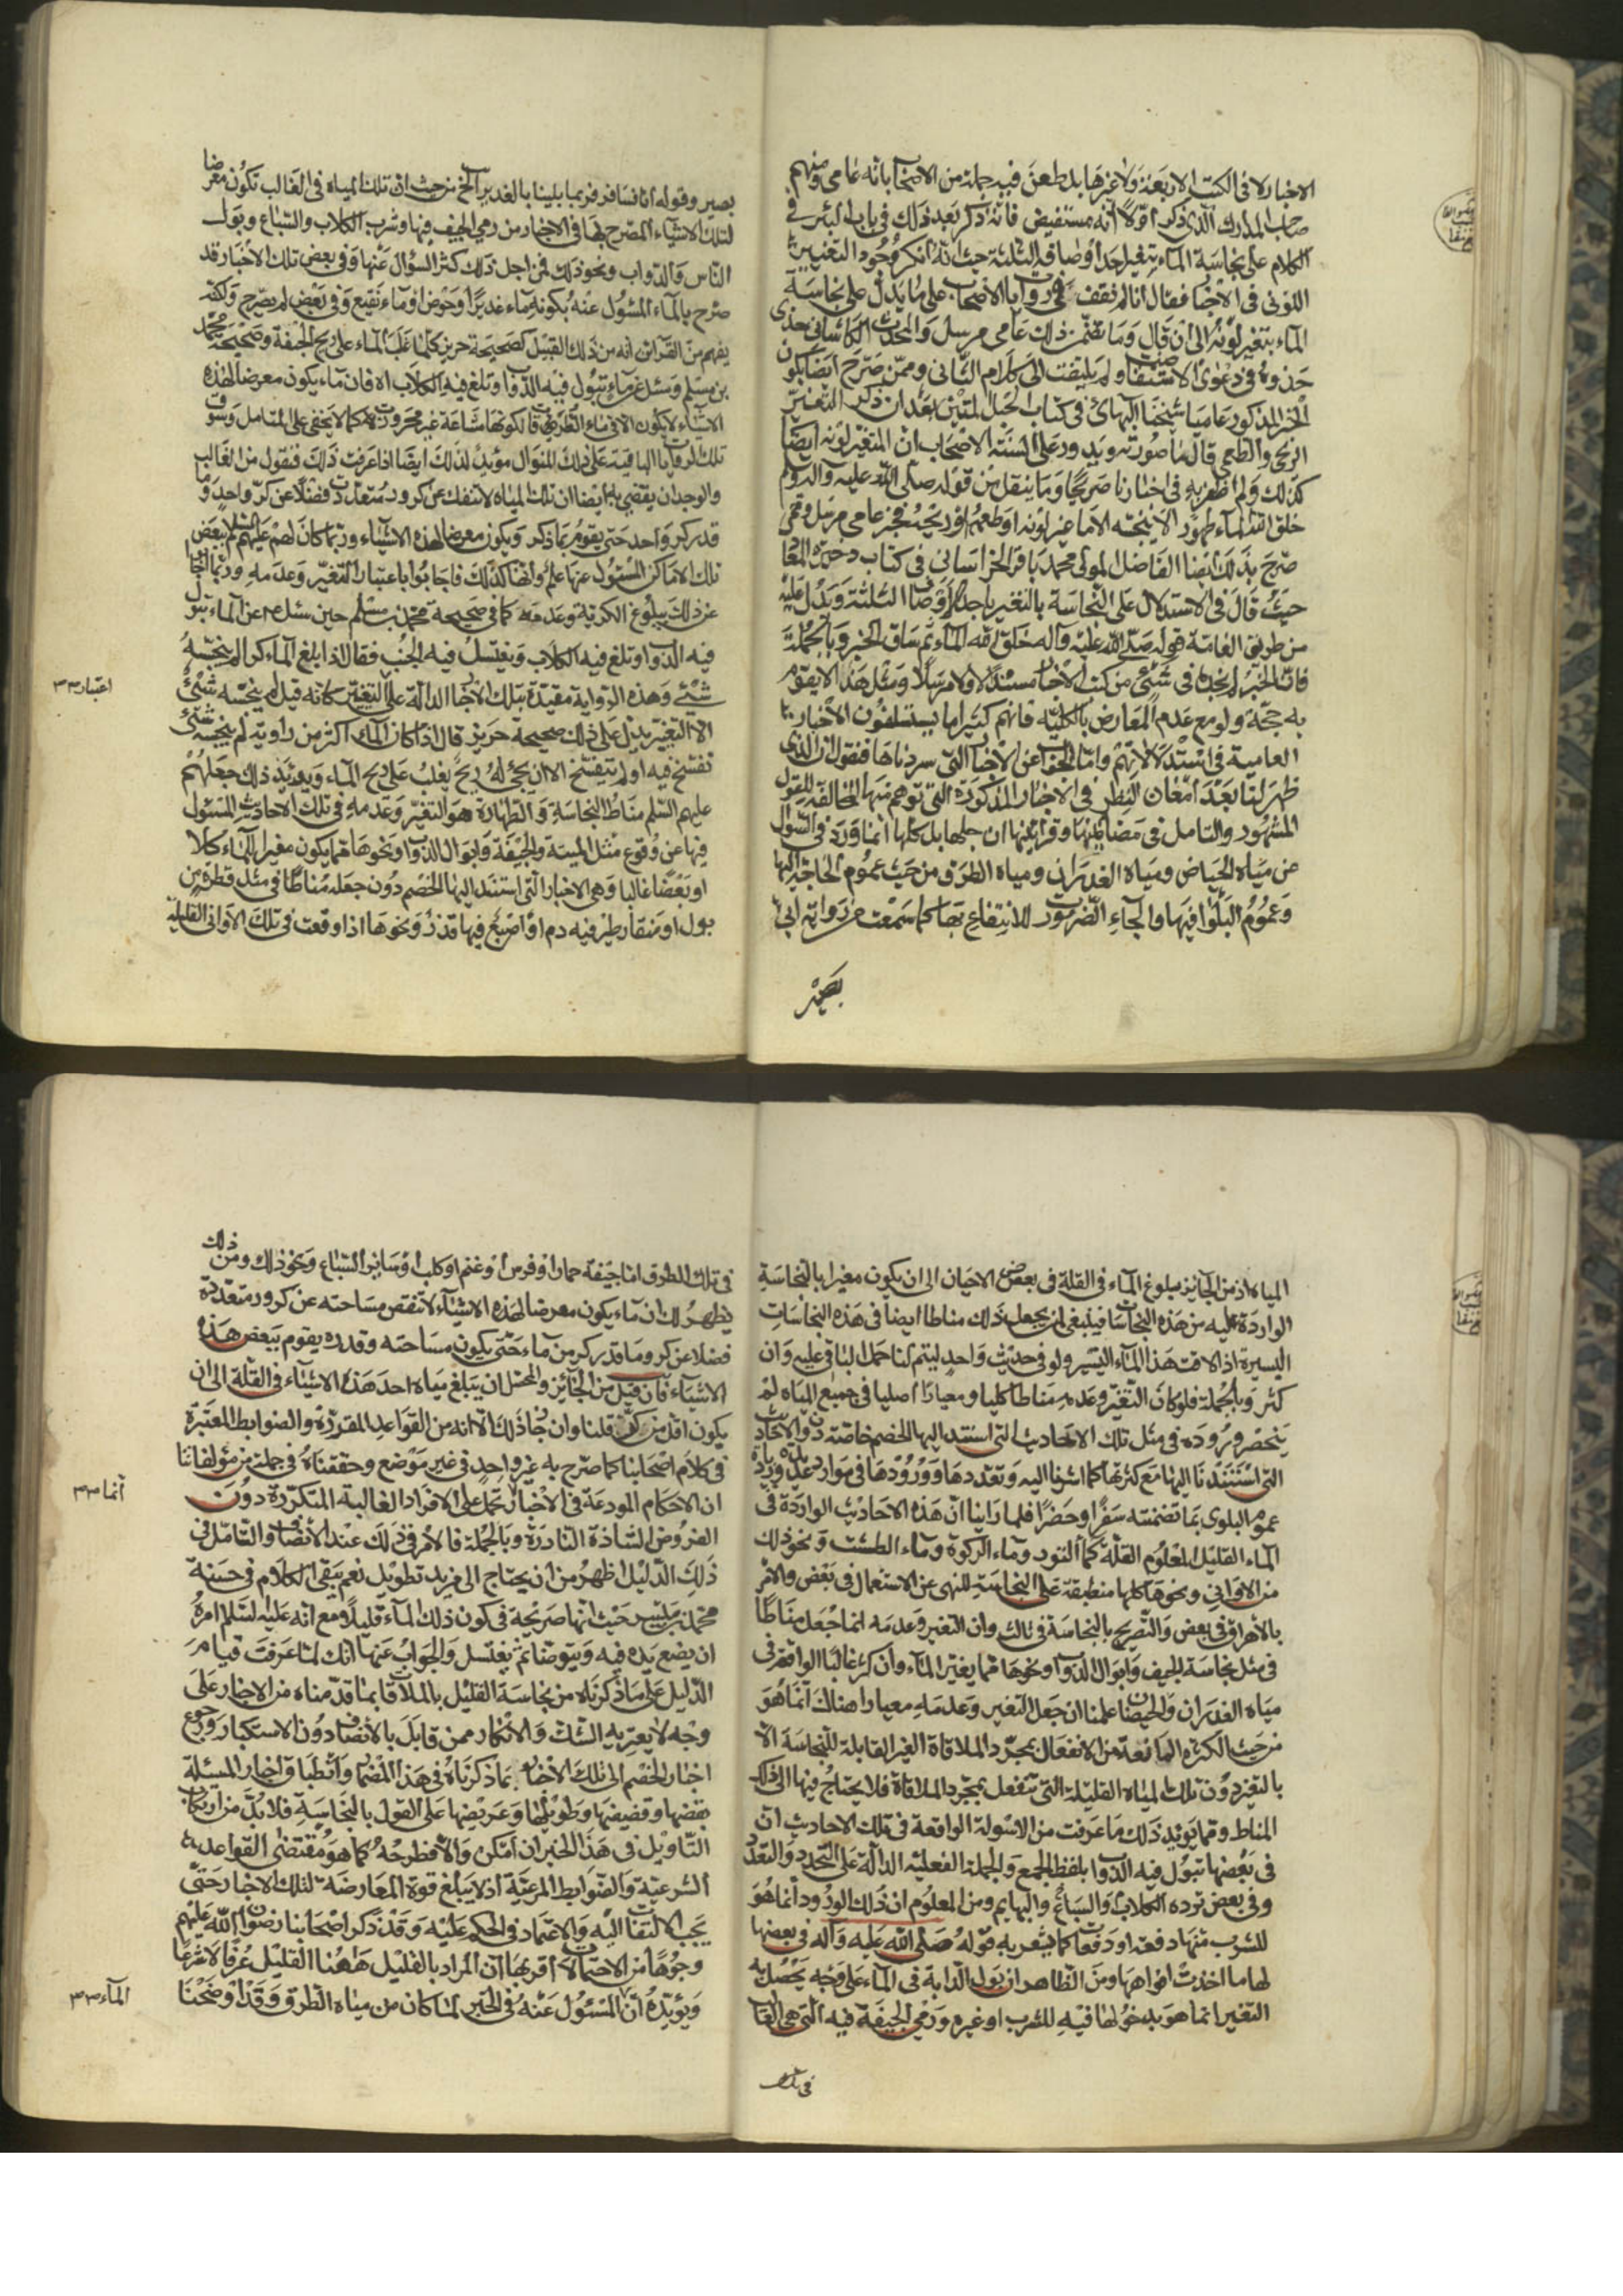 الاخبار لا فى الكتب الاربعة ولا غيرها بل طعن فيه جملة من الاصحاب بانه عامى ومنهم
صاحب المدارك الذى ذكر اولا انه مستفيض فانه ذكر بعد ذلك فى باب البئر فى
الكلام على نجاسة الماء بتغير احد أوصافه الثلثة حيث انه انكر وجود التغيير
اللونى فى الاخبار فقال انا لم نقف فى روايات الاصحاب على ما يدل على نجاسة
الماء بتغير لونه الى ان قال وما تضمن ذلك عامى مرسل والمحدث الكاشانى حذى
حذوه فى دعوى الاستفاضة ولم يلتفت الى كلام الثانى وممن صرح ايضا بكون
الخبر المذكور عاميا شيخنا البهائى فى كتاب الحبل المتين بعد ان ذكر التغير
الريحى والطعمى قال ما صورته ويدور على السنة الاصحاب ان المتغير لونه ايضا
كذلك ولم اظفر به فى اخبارنا صريحا وما ينقل من قوله صلى الله عليه واله وسلم
خلق الله الماء طهور الا ينجسه الا ما غير لونه او طعمه او ريحه فخبر عامى مرسل وممن
صرح بذلك ايضا الفاضل المولى محمد باقر الخراسانى فى كتاب ذخيرة المعاد
حيث قال فى الاستدلال على النجاسة بالتغير باحد الاوصاف الثلثة ويدل عليه
من طريق العامة قوله صلى الله عليه وآله خلق الله الماء ثم ساق الخبر وبالجملة
فان الخبر لم نجده فى شئى من كتب الاخبار مسندا ولا مرسلا ومثل هذا لا يقوم
به حجة ولو مع عدم المعارض بالكلية فانهم كثيرا ما يستسلفون الاخبار
العامية فى استدلالاتهم واما الجواب عن الاخبار التى سردناها فنقول ان الذى
ظهر لنا بعد امعان النظر فى الاخبار المذكورة التى توهم منها المخالفة للقول
المشهور والتامل فى مضامينها وقرائنها ان جلها بل كلها انما ورد فى السوال
عن مياه الحياض ومياه الغدران ومياه الطرق من حيث عموم الحاجة اليها
وعموم البلوا فيها والجاء الضرورت للانتفاع بها كما سمعت من رواية ابى
بصير
بصير وقوله انا نسافر فربما بلينا بالغدير الخ من حيث ان تلك المياه فى الغالب تكون معرضا
لتلك الاشياء المصرح بها فى الاخبار من رمى الجيف فيها وشرب الكلاب والسباع وبول
الناس والدواب ونحو ذلك فمن اجل ذلك كثر السؤال عنها وفى بعض تلك الأخبار قد
صرح بالماء المسئول عنه بكونه ماء غدير او حوض او ماء نقيع وفى بعض لم يصرح ولكنه
يفهم من القرائن انه من ذلك القبيل كصحيحة حريز كلما غلب الماء على ريح الجيفة وصحيحة محمد
بن مسلم وسئل عن ماء تبول فيه الدواب وتلغ فيه الكلاب اه فان ماء يكون معرضا لهذه
الاشياء لا يكون الا فى ماء الطرقات لكونها مشاعة غير محروزة كما لا يخفى على المتامل وسوف
تلك الروايات الباقية على ذلك المنوال مؤيد لذلك ايضا اذا عرفت ذلك فنقول من الغالب
والوجدان يقتضى به ايضا ان تلك المياه لا تنفك عن كرور متعددة فضلا عن كر واحد وما
قدر كر واحد حتى يقوم بما ذكر ويكون معرضا لهذه الاشياء وربما كان لهم عليهم السلم ببعض
تلك الاماكن المسئول عنها علم وانها كذلك فاجابوا باعتبار التغير وعدمه وربما اجابوا
عن ذلك ببلوغ الكرية وعدمه كما فى صحيحة محمد بن مسلم حين سئل عن الماء تبول
فيه الدواب وتلغ فيه الكلاب ويغتسل فيه الجنب فقال اذا بلغ الماء كر الم ينجسه
شئى وهذه الرواية مقيدة بتلك الاخبار الدالة على التغيير كانه قيل لم ينجسه شئى
الا التغير يدل على ذلك صحيحة حريز قال اذا كان الماء اكثر من راوية لم ينجسه شئى
تفسخ فيه او لم يتفسخ الا ان يجئ له ريح يغلب على ريح الماء ويؤيد ذلك جعلهم
عليهم السلم مناط النجاسة والطهارة هو التغير وعدمه فى تلك الاحاديث المسئول
فيها عن وقوع مثل الميتة والجيفة وابوال الدواب ونحوها مما يكون مغيرا للماء كلا
او بعضا غالبا وهى الاخبار التى استند اليها الخصم دون جعله مناطا فى مثل قطرة من
بول او منقار طير فيه دم او اصبع فيها قذر ونحوها اذا وقعت فى تلك الاوانى القليلة
اعتبار
المياه اذ من الجايز بلوغ الماء فى القلة فى بعض الاحيان الى ان يكون مغيرا بالنجاسة
الواردة عليه من هذه النجاسات فينبغى ان يجعل ذلك مناطا ايضا فى هذه النجاسات
اليسيرة اذا لاقت هذا الماء اليسير ولو فى حديث واحد ليتم لنا حمل الباقى عليه وان
كثر وبالجملة فلو كان التغير وعدمه مناطا كليا ومعيارا اصليا فى جميع المياه لم
ينحصر وروده فى مثل تلك الاحاديث التى استند اليها الخصم خاصة دون الاحاديث
التى استندنا اليها مع كثرتها كما اشرنا اليه وتعددها وورودها فى موارد عديدة
عموم البلوى بما تضمنته سفرا وحضرا فلما راينا ان هذه الاحاديث الواردة فى
الماء القليل المعلوم القلة كماء التور وماء الركوة وماء الطشت ونحو ذلك
من الاوانى ونحوها كلها منطبقة على النجاسة للنهى عن الاستعمال فى بعض والامر
بالاهراق فى بعض والتصريح بالنجاسة فى ثالث وان التغير وعدمه انما جعل مناطا
فى مثل نجاسة الجيف وابوال الدواب ونحوها مما يغير الماء وان كثر غالبا الواقعة فى
مياه الغدران والحياض علمنا ان جعل التغير وعدمه معيارا هناك انما هو
من حيث الكثرة المانعة من الانفعال بمجرد الملاقاة الغير القابلة للنجاسة الا
بالتغير دون تلك المياه القليلة التى تنفعل بمجرد الملاقاة فلا يحتاج فيها الى ذلك
المناط ومما يؤيد ذلك ما عرفت من الاسولة الواقعة فى تلك الاحاديث ان
فى بعضها تبول فيه الدواب بلفظ الجمع والجملة الفعلية الدالة على التجدد والتعدد
وفى بعض ترده الكلاب والسباع والبهايم ومن المعلوم ان ذلك الورود انما هو
للشرب منها دفعة او دفعات كما يشعر به قوله صلى الله عليه وآله فى بعضها
لها ما اخذت افواهها ومن الظاهر ان بول الدابة فى الماء على وجه يحصل به
التغير انما هو بدخولها فيه للشرب او غيره ورمى الجيفة فيه التى هى الغالب
فى تلك
فى تلك الطرق اما جيفة حمار او فرس او غنم او كلب او سائر السباع ونحو ذلك ومن ذلك
يظهر لك ان ماء يكون معرضا لهذه الاشياء لا تنقص مساحته عن كرور متعددة
فضلا عن كر وما قدر كر من ماء حتى يكون مساحته وقدره يقوم ببعض هذه
الاشياء فان قيل من الجائز والمحتمل ان يبلغ مياه احد هذه الاشياء فى القلة الى ان
يكون اقل من كر قلنا وان جاز ذلك الا انه من القواعد المقررة والضوابط المعتبرة
فى كلام اصحابنا كما صرح به غير واحد فى غير موضع وحققناه فى جملة من مؤلفاتنا
ان الاحكام المودعة فى الاخبار تحمل على الافراد الغالبة المتكررة دون
الفروض الشاذة النادرة وبالجملة فالامر فى ذلك عند الانصاف والتامل فى
ذلك الدليل اظهر من ان يحتاج الى مزيد تطويل نعم يبقى الكلام فى حسنة
محمد بن ميسر حيث انها صريحة فى كون ذلك الماء قليلا ومع انه عليه السلم امره
ان يضع يده فيه ويتوضا ثم يغتسل والجواب عنها انك لما عرفت قيام
الدليل على ما ذكرناه من نجاسة القليل بالملاقات بما قدمناه من الاخبار على
وجه لا يعتريه الشك والانكار ممن قابل بالانصاف دون الاستكبار ورجوع
اخبار الخصم الى تلك الاخبار بما ذكرناه فى هذا المضمار وانطباق اخبار المسئلة
بقضها وقضيضها وطويلها وعريضها على القول بالنجاسة فلابد من ارتكاب
التاويل فى هذا الخبر ان امكن والا فطرحه كما هو مقتضى القواعد
الشرعية والضوابط المرعية اذ لا يبلغ قوة المعارضة لتلك الاخبار حتى
يجب الالتفات اليه والاعتماد فى الحكم عليه وقد ذكر اصحابنا رضوان الله عليهم
وجوها من الاحتمالات اقربها ان المراد بالقليل هاهنا القليل عرفا لا شرعا
ويؤيده ان المسئول عنه فى الخبر لما كان من مياه الطرق وقد اوضحنا
انما
الماء